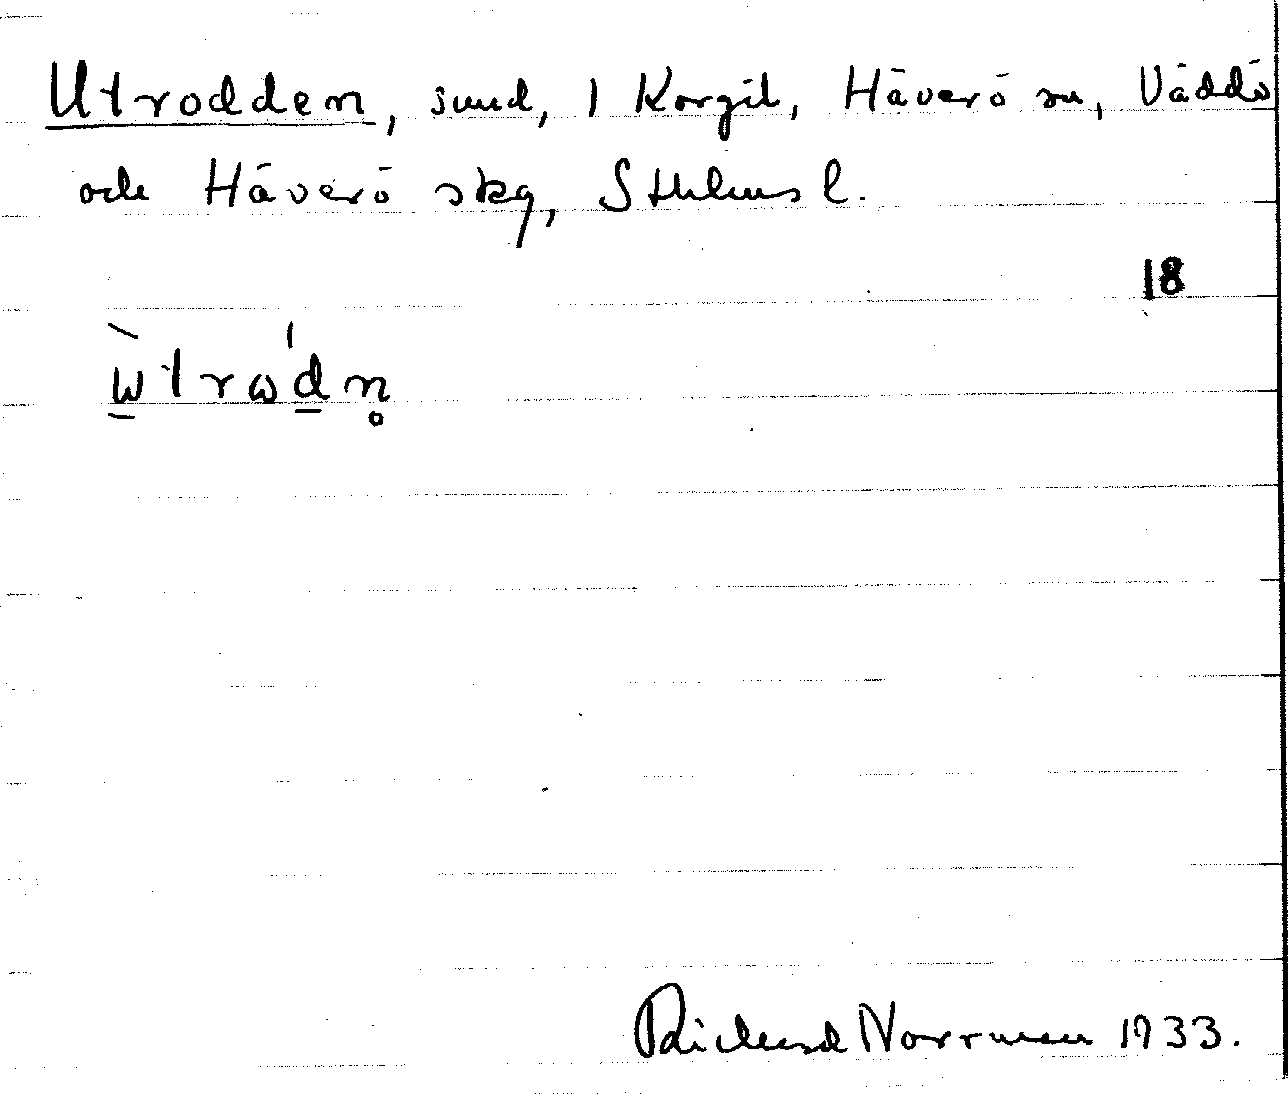 Utrodden, sund, 1 Korgil, Häverö sn, Väddö
och Häverö skg, Sthlms l.
18
ẁtrɷ'dn̥
Richard Norrman 1933.